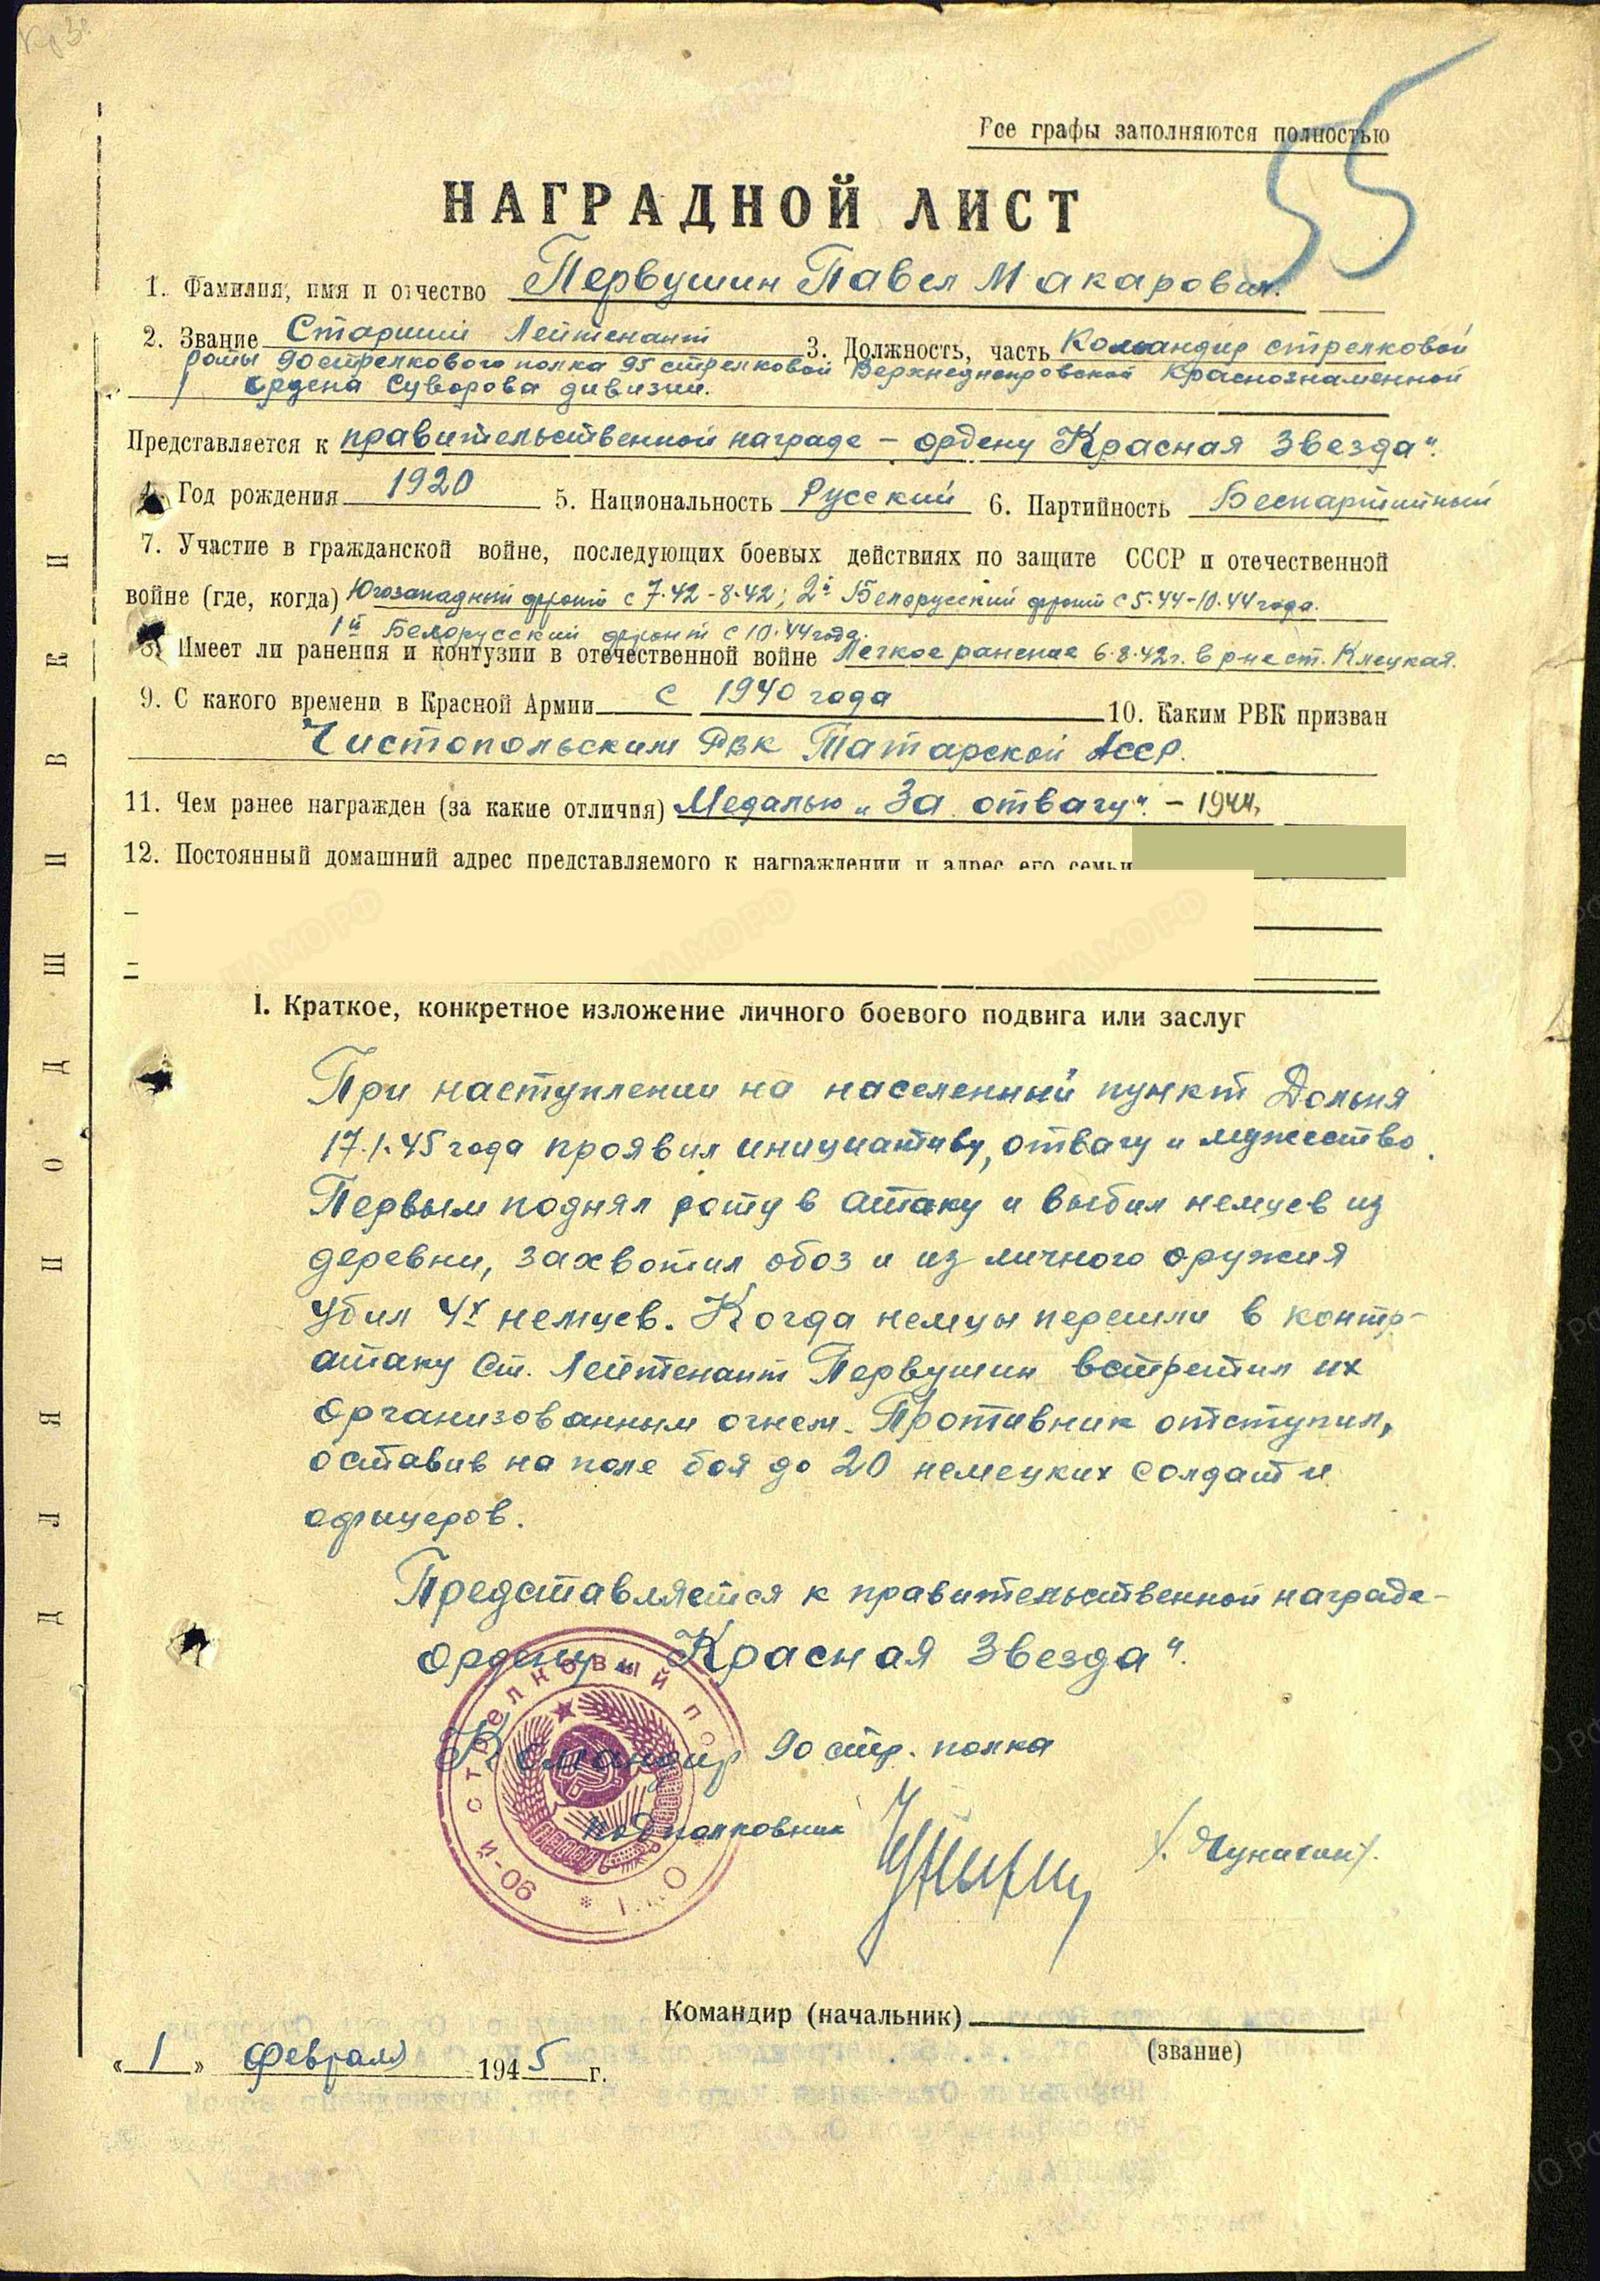 Все графы заполняются полностью
55
НАГРАДНОЙ ЛИСТ
1. Фамилия, имя и отчество Первушин Павел Макарович.
2. Звание Старший Лейтенант 3. Должность, часть Командир стрелковой
роты 90 стрелкового полка 95 стрелковой Верхнеднепровской Краснознаменной
ордена Суворова дивизии.
Представляется к правительственной награде – ордену "Красная Звезда".
4. Год рождения 1920 5. Национальность Русский 6. Партийность Беспартийный
7. Участие в гражданской войне, последующих боевых действиях по защите СССР и отечественной
войне (где, когда) Югозападный фронт с 7.42-8.42; 2й Белорусский фронт с 5.44-10.44 года.
1й Белорусский фронт с 10.44 года.
8. Имеет ли ранения и контузии в отечественной войне Легкое ранение 6.8.42г. в р-не ст. Клецкая.
9. С какого времени в Красной Армии с 1940 года 10. Каким РВК призван
Чистопольским РВК Татарской АССР.
11. Чем ранее награжден (за какие отличия) Медалью „За отвагу". – 1944г.
12. Постоянный домашний адрес представляемого к награждении и адрес его семьи
I. Краткое, конкретное изложение личного боевого подвига или заслуг
При наступлении на населенный пункт Дольня
17.1.45 года проявил инициативу, отвагу и мужество.
Первым поднял роту в атаку и выбил немцев из
деревни, захватил обоз и из личного оружия
убил 4х немцев. Когда немцы перешли в контр-
атаку Ст. Лейтенант Первушин встретил их
организованным огнем. Противник отступил,
оставив на поле боя до 20 немецких солдат и
офицеров.
Представляется к правительственной награде –
ордену „Красная Звезда".
Командир 90 стр. полка
подполковник
90-й стрелковый
Командир (начальник)
(звание)
«1» Февраля 1945 г.
ДЛЯ ПОДШИВКИ
ЦАМО РФ